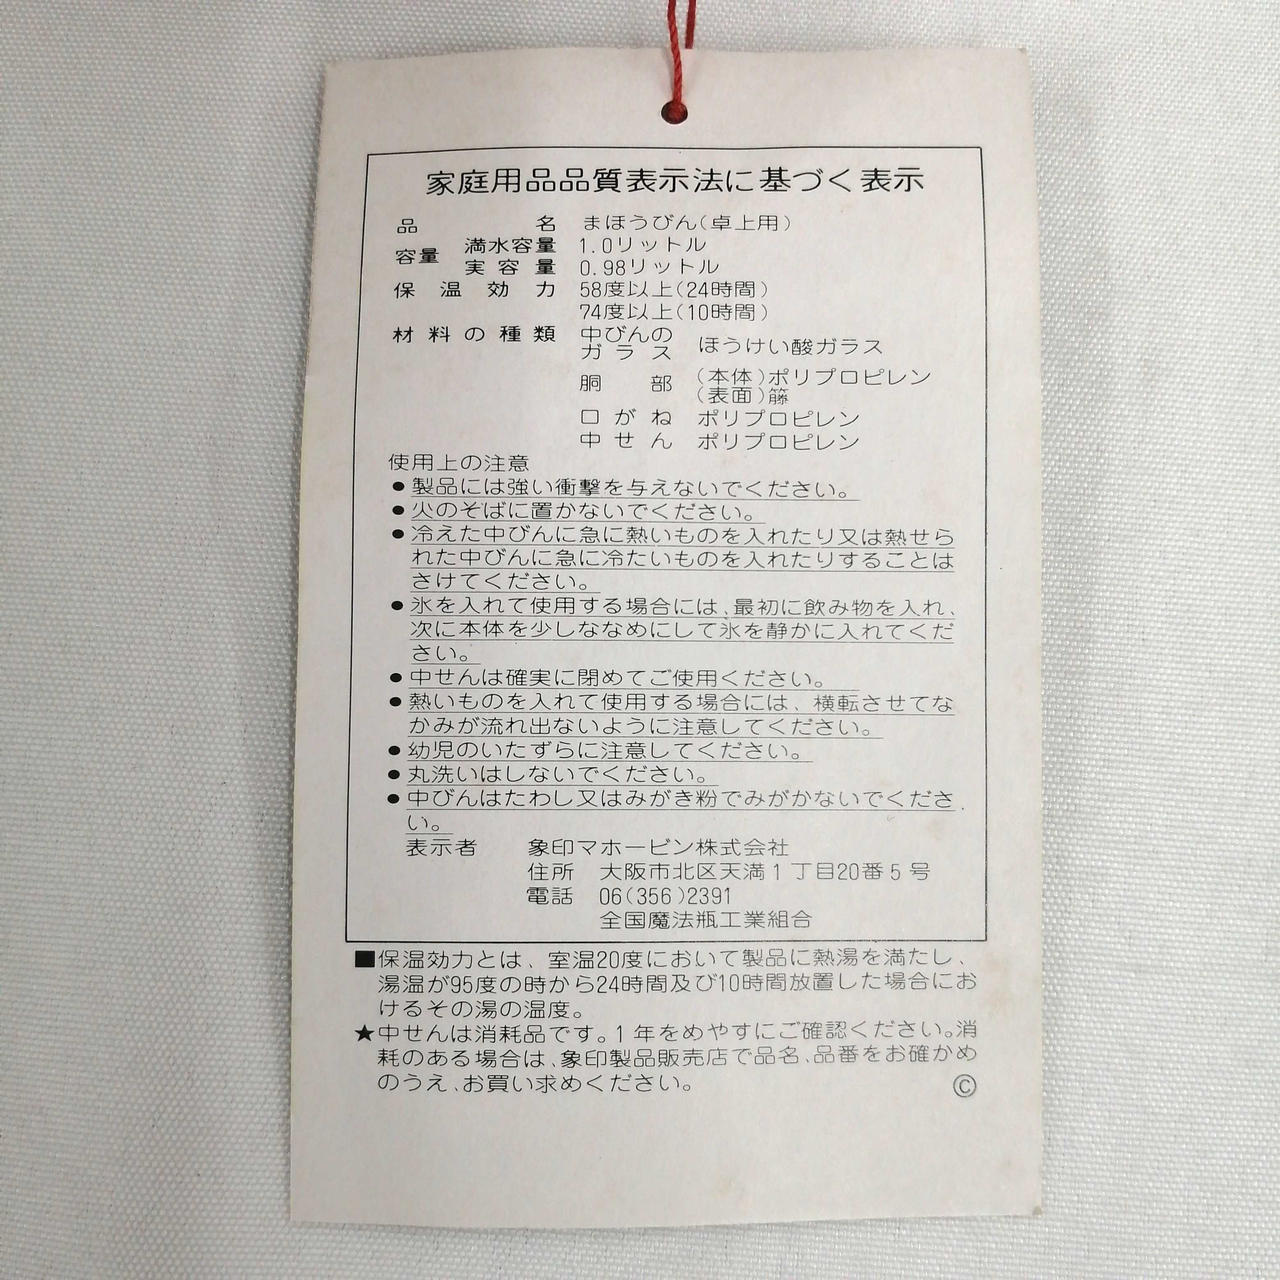 家庭用品品質表示法に基づく表示
品名 まほうびん(卓上用)
容量 満水容量 1.0リットル
実容量 0.98リットル
保温効力 58度以上(24時間)
74度以上(10時間)
材料の種類 中びんのガラス ほうけい酸ガラス
胴部 (本体)ポリプロピレン
(表面)籐
口がね ポリプロピレン
中せん ポリプロピレン
使用上の注意
●製品には強い衝撃を与えないでください。
●火のそばに置かないでください。
●冷えた中びんに急に熱いものを入れたり又は熱せら
れた中びんに急に冷たいものを入れたりすることは
さけてください。
●氷を入れて使用する場合には、最初に飲み物を入れ、
次に本体を少しななめにして氷を静かに入れてくだ
さい。
●中せんは確実に閉めてご使用ください。
●熱いものを入れて使用する場合には、横転させてな
かみが流れ出ないように注意してください。
●幼児のいたずらに注意してください。
●丸洗いはしないでください。
●中びんはたわし又はみがき粉でみがかないでくださ
い。
表示者 象印マホービン株式会社
住所 大阪市北区天満1丁目20番5号
電話 06(356)2391
全国魔法瓶工業組合
■保温効力とは、室温20度において製品に熱湯を満たし、
湯温が95度の時から24時間及び10時間放置した場合にお
けるその湯の温度。
★中せんは消耗品です。1年をめやすにご確認ください。消
耗のある場合は、象印製品販売店で品名、品番をお確かめ
のうえ、お買い求めください。
©